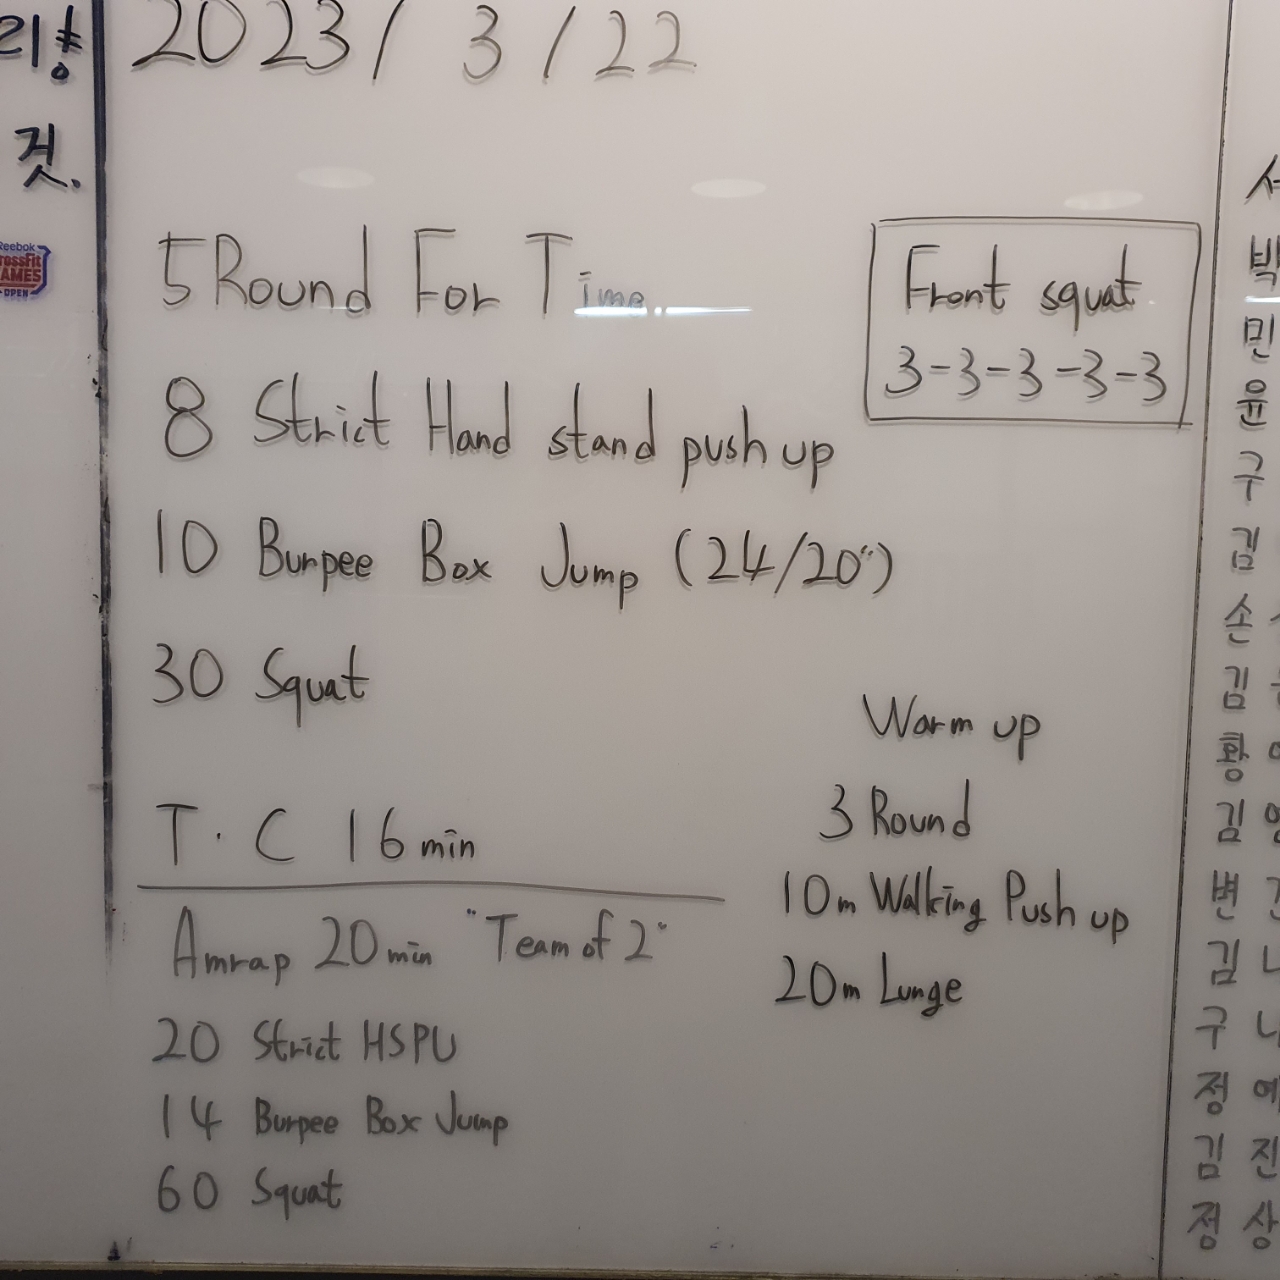 리하
것.
Reebok
CrossFit
GAMES
OPEN
2023 / 3 / 22
5 Round For Time.
8 Strict Hand stand push up
10 Burpee Box Jump (24/20")
30 Squat
T.C 16 min
Front squat
3-3-3-3-3
Amrap 20 min "Team of 2"
20 Strict HSPU
14 Burpee Box Jump
60 Squat
Warm up
3 Round
10m Walking Push up
20m Lunge
서
박
민
윤
구
김
손
김
황
김
변
김
구
정
김 진
정 상